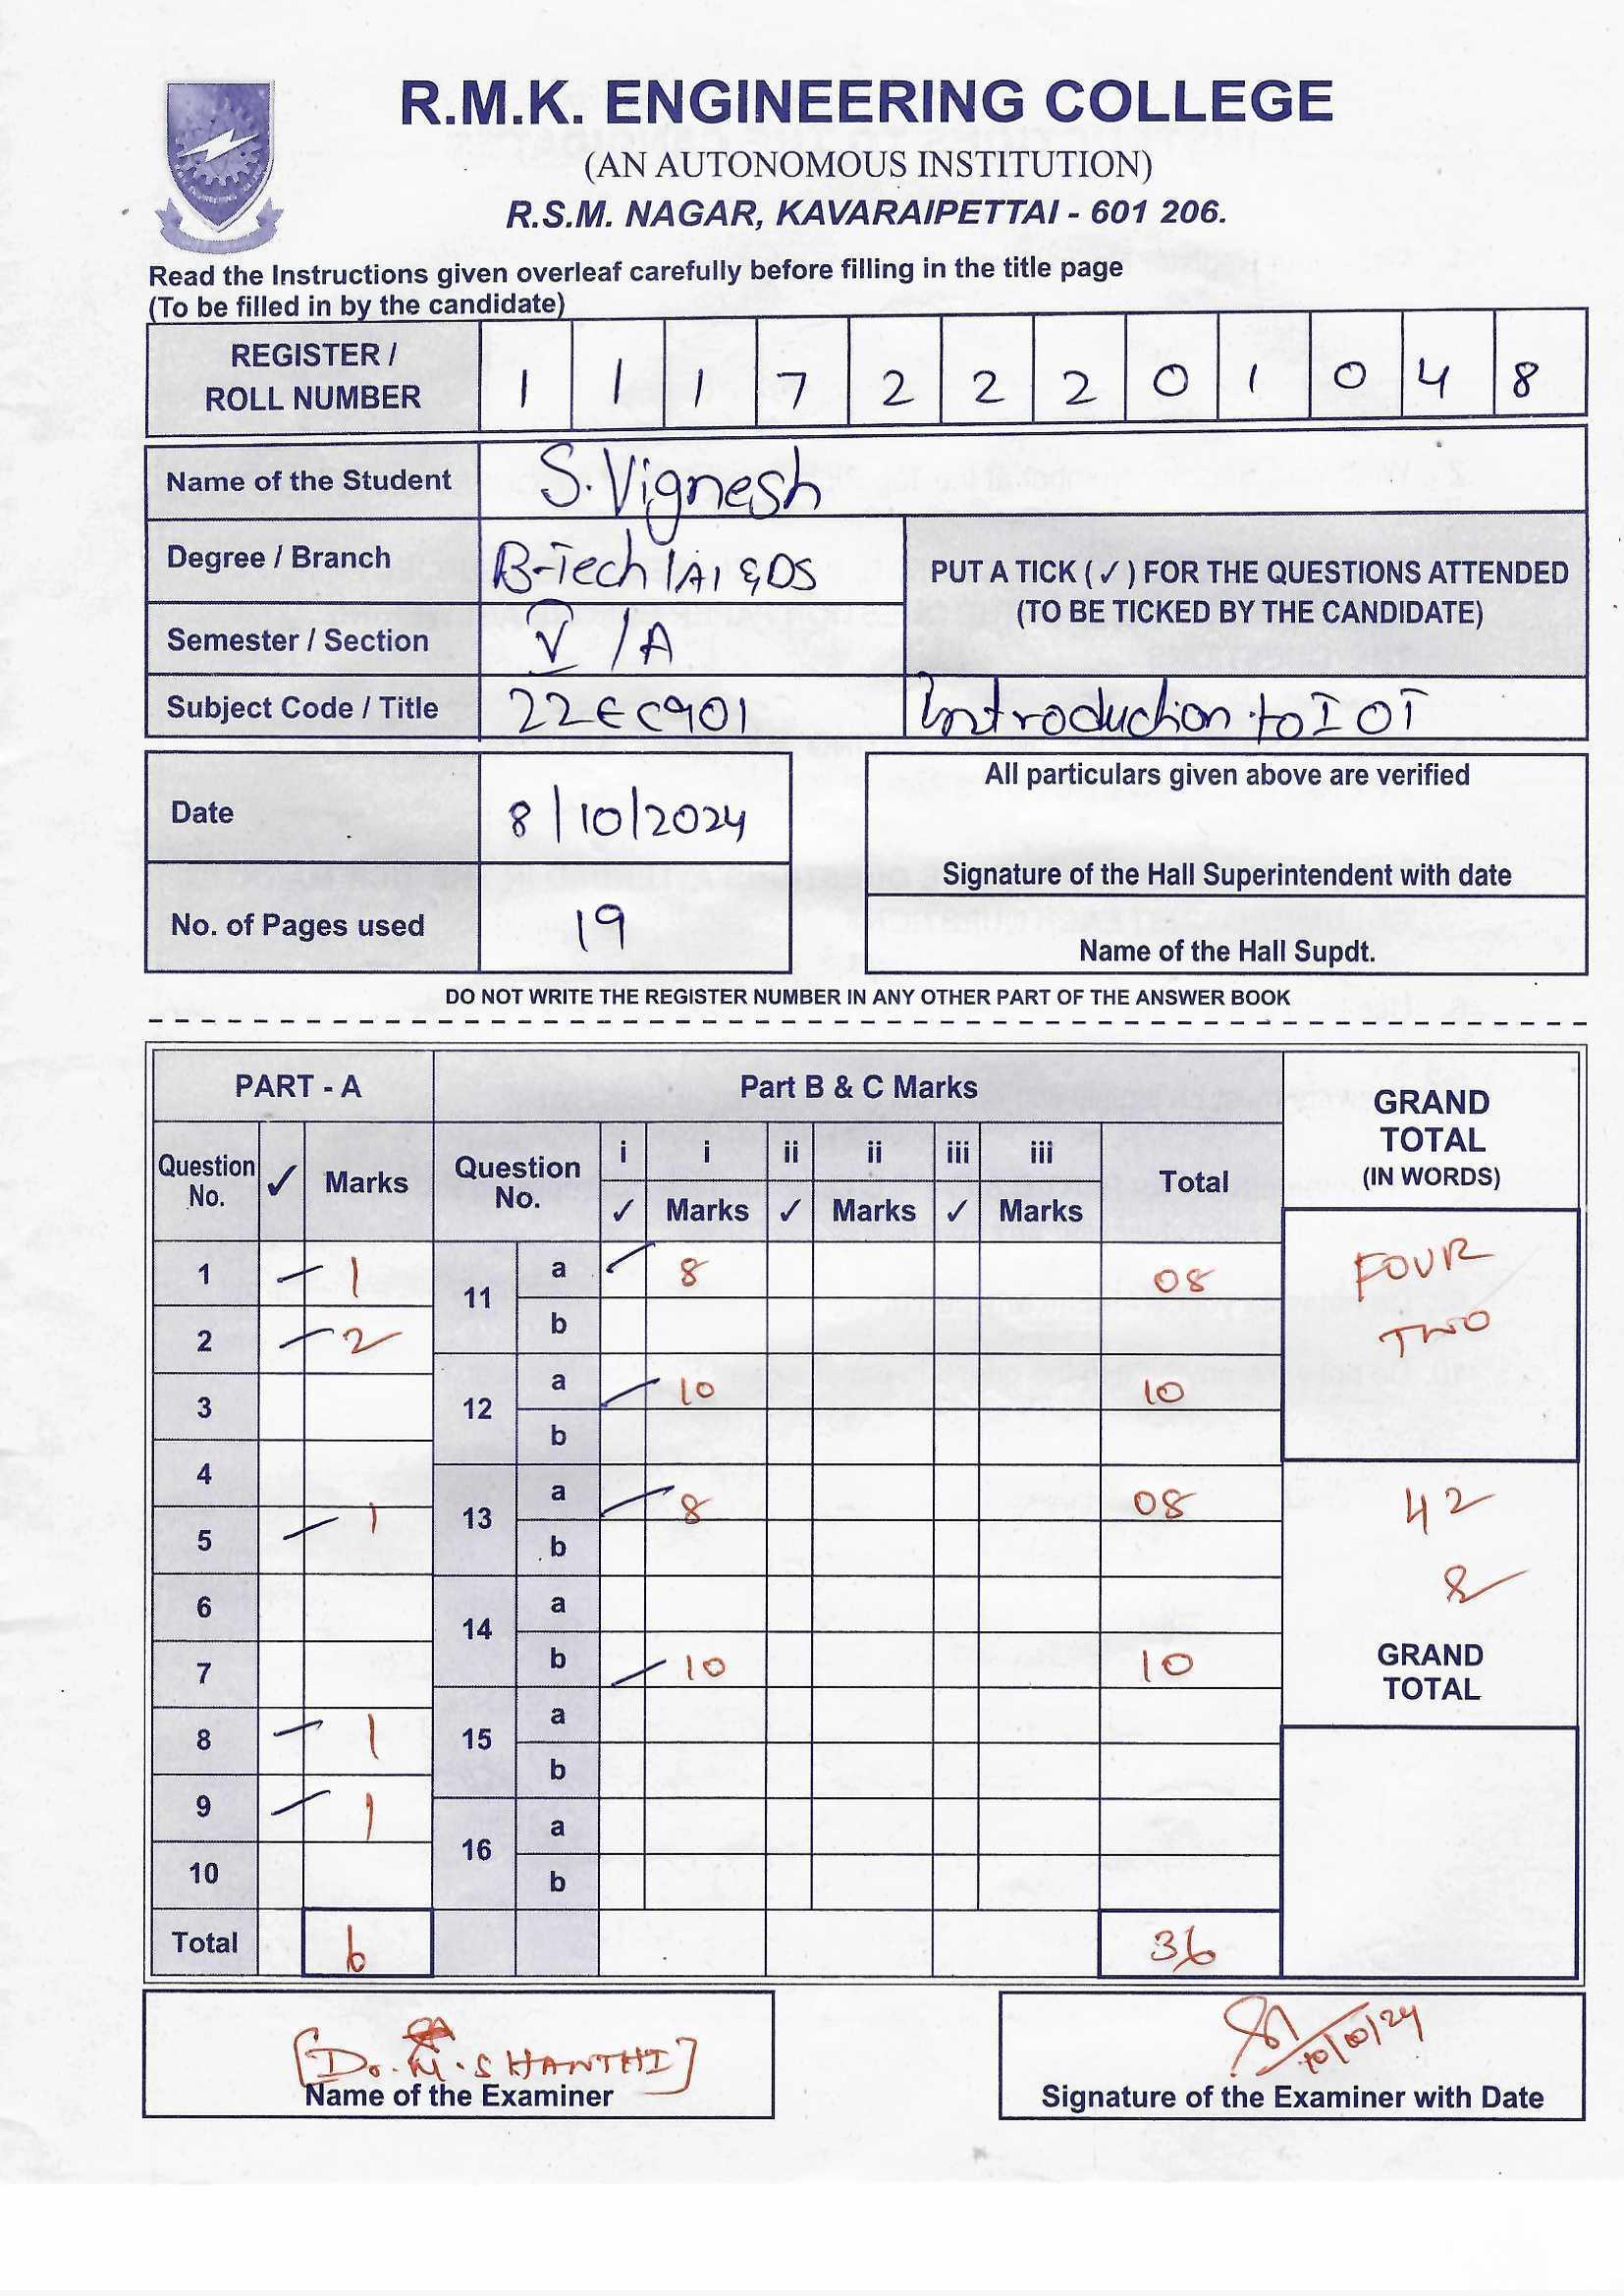 R.M.K. ENGINEERING COLLEGE
(AN AUTONOMOUS INSTITUTION)
R.S.M. NAGAR, KAVARAIPETTAI - 601 206.
Read the Instructions given overleaf carefully before filling in the title page
(To be filled in by the candidate)
REGISTER / ROLL NUMBER 1 1 1 7 2 2 2 0 1 0 4 8
Name of the Student S. Vignesh
Degree / Branch B-Tech / AI & DS
PUT A TICK ( ✓ ) FOR THE QUESTIONS ATTENDED
(TO BE TICKED BY THE CANDIDATE)
Semester / Section V / A
Subject Code / Title 22EC901 Introduction to IOT
Date 8/10/2024
All particulars given above are verified
Signature of the Hall Superintendent with date
No. of Pages used 19
Name of the Hall Supdt.
DO NOT WRITE THE REGISTER NUMBER IN ANY OTHER PART OF THE ANSWER BOOK
PART - A
Part B & C Marks
GRAND TOTAL (IN WORDS)
Question No. ✓ Marks
Question No. i ✓ i Marks ii ✓ ii Marks iii ✓ iii Marks Total
1 ✓ 1
2 ✓ 2
3
4
5 ✓ 1
6
7
8 ✓ 1
9 ✓ 1
10
Total 6
11 a ✓ 8 08
b
12 a ✓ 10 10
b
13 a ✓ 8 08
b
14 a
b ✓ 10 10
15 a
b
16 a
b
36
FOUR
TWO
42
GRAND TOTAL
[Dr. M. SHANTHI]
Name of the Examiner
10/10/24
Signature of the Examiner with Date